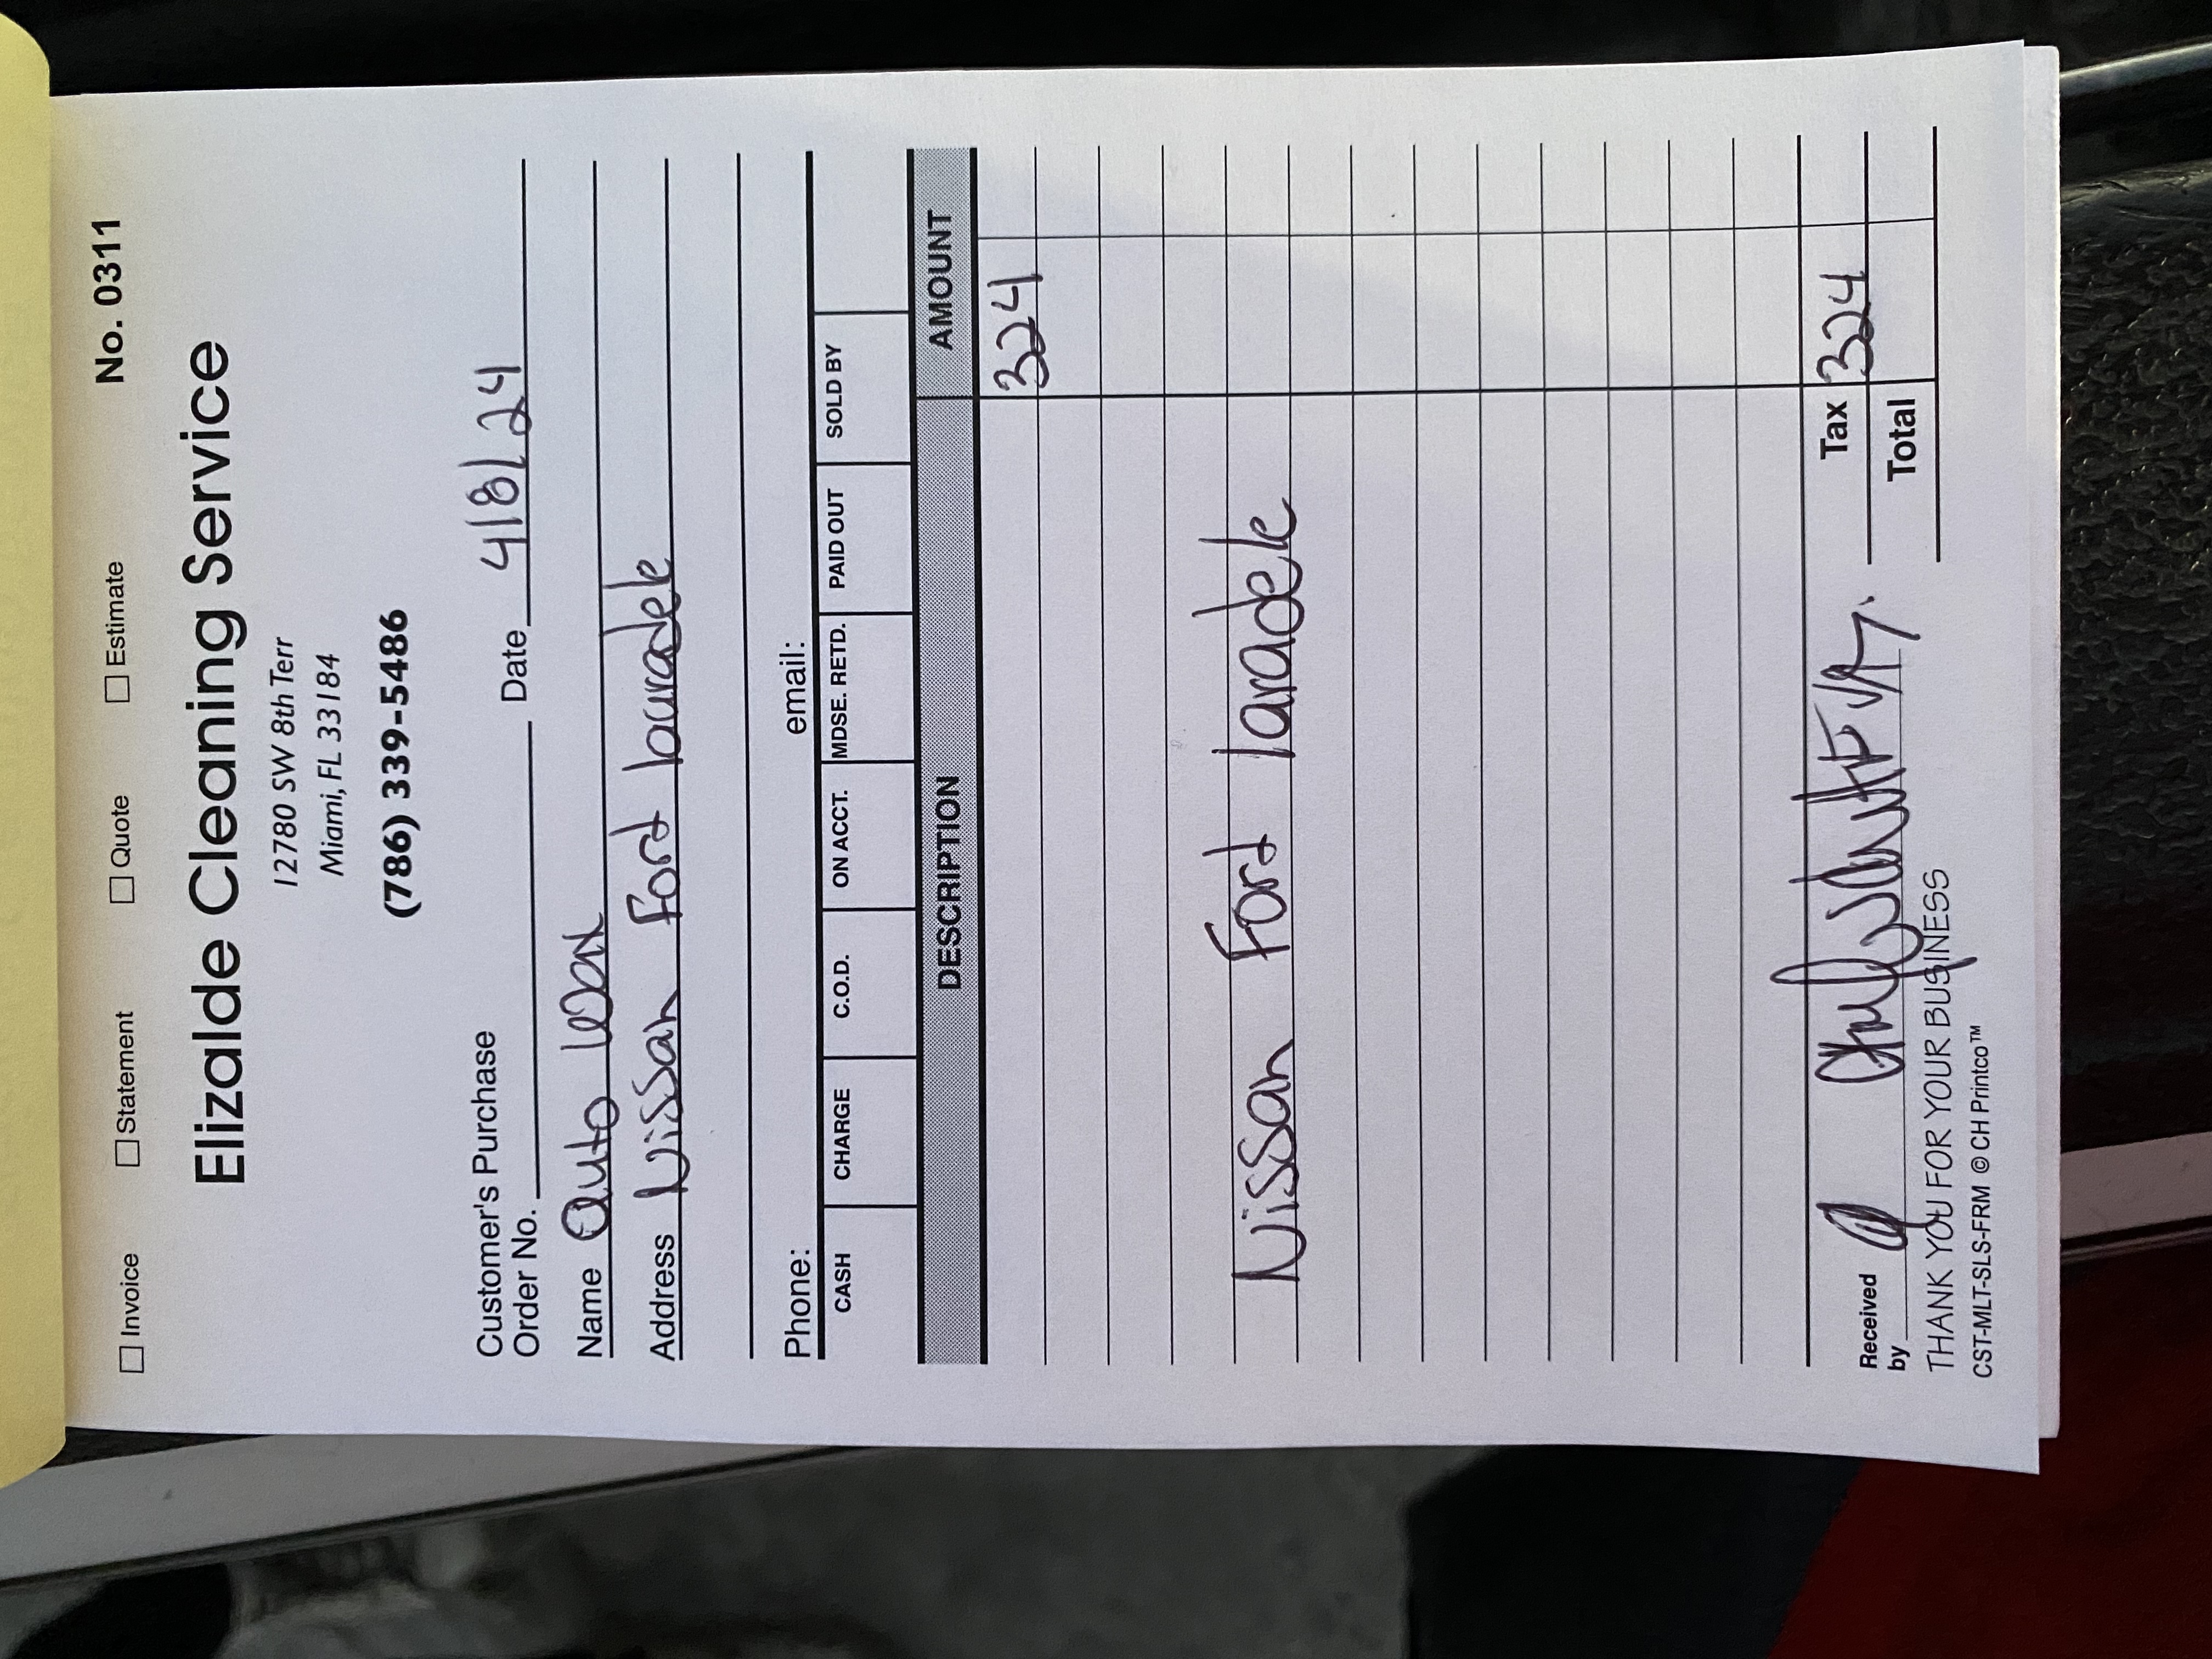 Invoice Statement Quote Estimate No. 0311
Elizalde Cleaning Service
12780 SW 8th Terr
Miami, FL 33184
(786) 339-5486
Customer's Purchase
Order No. Date 4/8/24
Name Auto
Address Nissan Ford lauradele
Phone: email:
CASH CHARGE C.O.D. ON ACCT. MDSE. RETD. PAID OUT SOLD BY
DESCRIPTION AMOUNT
324
Nissan Ford laradele
Tax 324
Received
by
Total
THANK YOU FOR YOUR BUSINESS
CST-MLT-SLS-FRM © CH Printco™